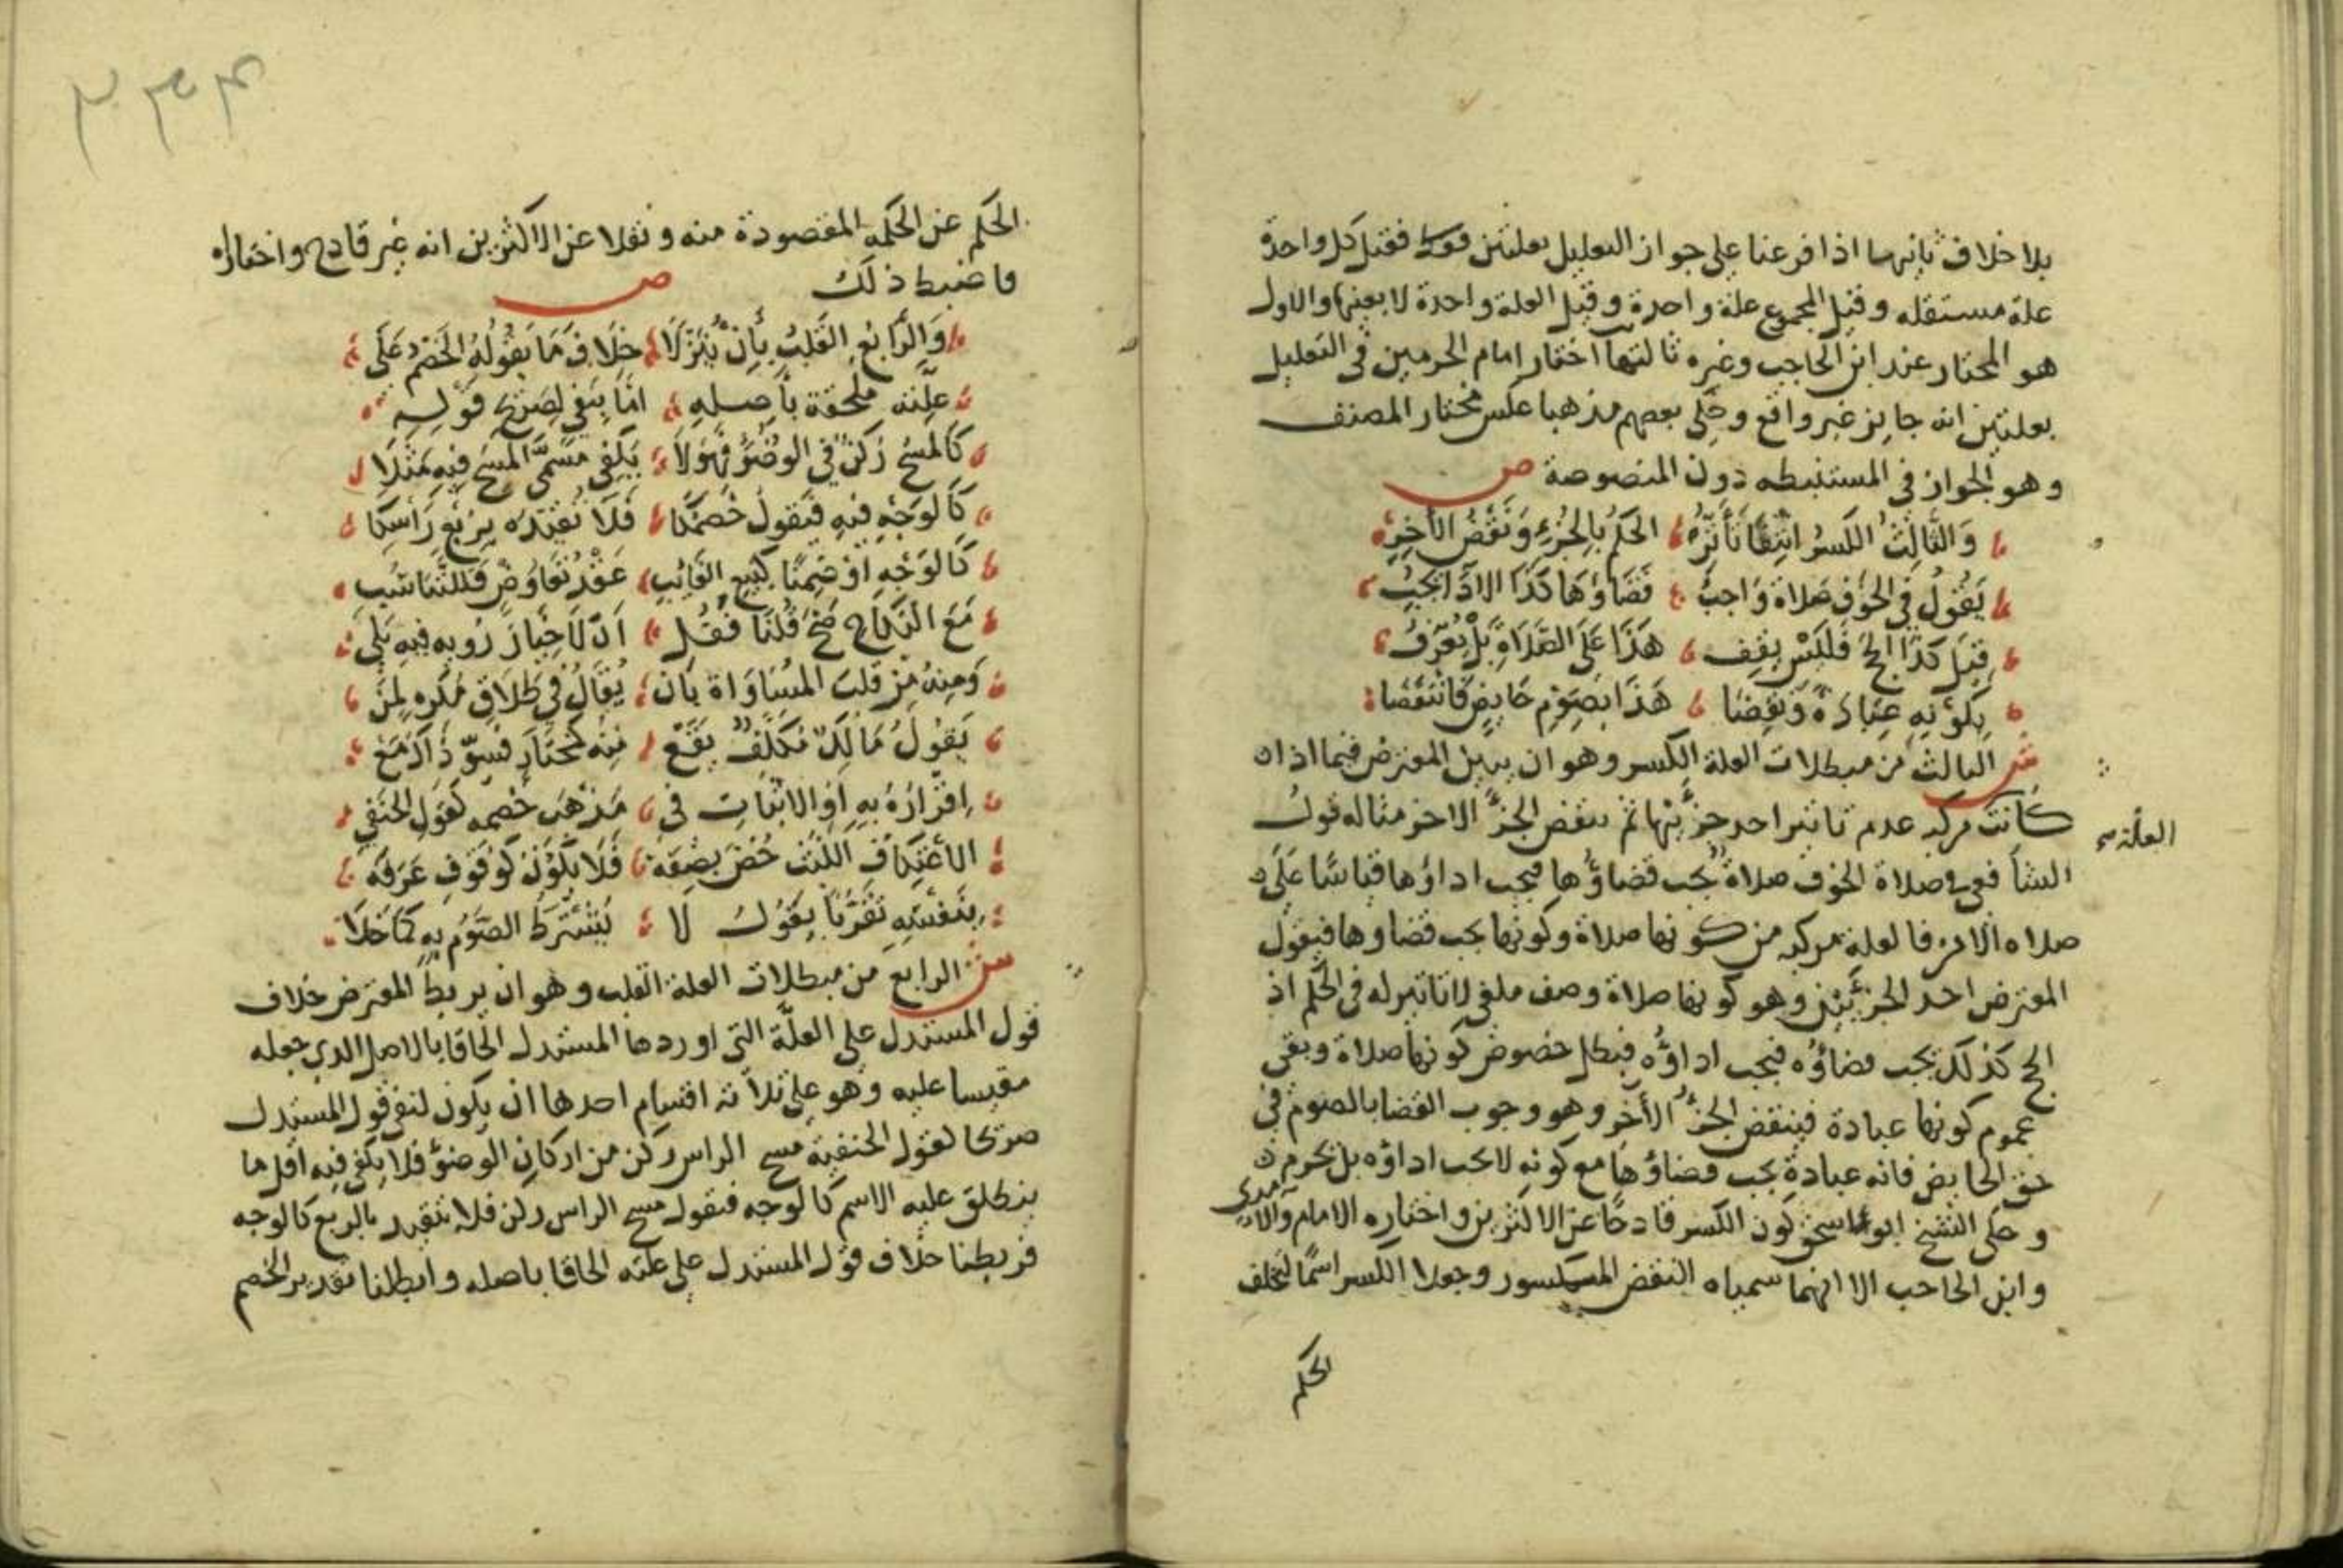 بلا خلاف ثانيها اذا فرعنا على جواز التعليل بعلتين فقيل كل واحدة
علة مستقله وقيل المجموع علة واحدة وقيل العلة واحدة لا بعينها والاول
هو المختار عند ابن الحاجب وغيره ثالثها اختار امام الحرمين في التعليل
بعلتين انه جايز غير واقع وحكى بعضهم مذهبا عكس مختار المصنف
وهو الجواز في المستنبطه دون المنصوصة ص
وَالثَّالِثُ الكَسرُ انتِفَا تَأثِيرِ الحكمُ بِالجُزءِ وَنَقضُ الآخِرِ
يَقُولُ في الخَوفِ صَلاة وَاجبُ قَضَاؤهَا كَذَا الادَا يَجِبُ
قِيلَ كَذَا الحج فَلَيْسَ يقِف هَذَا عَلَى الصَّلاةِ بَلْ يُعرَفُ
بِكَوْنِهِ عِبَادَةً وَنُقِضَا هَذَا بِصَومِ حَايِضٍ فَانتَقَضَا
ش الثالث من مبطلات العلة الكسر وهو ان يبين المعترض فيما اذا
كانت مركبه عدم تاثير احد جزئيها ثم ينقض الجزء الاخر مثاله قول
العلة
الشافعي في صلاة الخوف صلاة يجب قضاؤها فيجب اداؤها قياسًا عَلَى
صلاه الامن فالعلة مركبه من كونها صلاة وكونها يجب قضاوها فيقول
المعترض احد الجزئين وهو كونها صلاة وصف ملغى لا تاثير له في الحكم اذ
الحج كذلك يجب قضاؤه فيجب اداؤه فبطل خصوص كونها صلاة وبقى
عموم كونها عبادة فينقض الجزء الآخر وهو وجوب القضا بالصوم في
حق الحايض فانه عبادة يجب قضاؤها مع كونه لا يجب اداؤه بل يحرم
وحكى الشيخ ابو اسحق كون الكسر قادحًا عن الاكثرين واختاره الامام والآمدى
وابن الحاجب الا انهما سمياه النقض المكسور وجعلا الكسر اسمًا لتخلف
الحكم
الحكم عن الحكمه المقصودة منه ونقلا عن الاكثرين انه غير قادح واختاراه
فاضبط ذلك ص
وَالرَّابعُ القَلبُ بِأنْ يُنَزِّلَا خِلَافَ مَا يَقُولُهُ الخَصمُ عَلَى
علّته ملحقة بأصلِهِ امّا بِنَفي لِصَريحِ قَوْلِهِ
كَالمَسْحُ رُكنٌ في الوضُوء فَهَوَلَا يَكفِي مُسَمَّى المَسح فيهِ مَثَلَا
كَالوَجْهِ فيهِ فَيقول خَصمُنَا فَلَا نُقَدِّرَه بِرُبْعِ رَأسِنَا
كَالوَجْهِ اوْ ضِمنًا كبَيعِ الغَائِبِ عَقْدُ تَعَاوُضٍ فَللتَّنَاسُبِ
مَعَ النِّكَاحِ صَحَّ قُلنَا فقُل أنْ لَا خِيَارَ رُويه فيهِ يَلِي
وَمِنهُ مِن قَلبِ المُسَاوَاة بِأن يُقَالُ في طَلَاقِ مُكرهٍ لِمَن
يَقُولُ مَالِكٌ مُكَلَّفٌ يَقَع مِنهُ كَمُختَارٍ فَسَوِّ ذَاكَ مَعْ
اِقرَارِهُ بهِ اَوِ الاثبَاتِ في مَذهَب خَصمِه كَقَولِ الحَنَفي
الاعتِكَافِ اللُّبْثُ خُصَّ بِصِفَه فَلَا يَكُوْنُ كَوُقوفِ عَرَفَه
بِنَفسِهِ تَقَرُّبًا يقَوُل لَا يُشتَرَط الصَّوْم بِهِ كَمَا خَلَا
ش الرابع من مبطلات العلة القلب وهو ان يربط المعترض خلاف
قول المستدل على العلّة التى اوردها المستدل الحاقا بالاصل الذي جعله
مقيسا عليه وهو على ثلاثه اقسام احدها ان يكون لنفي قول المستدل
صريحا كقول الحنفية مسح الراس ركن من اركان الوضوء فلا يكفى فيه اقل ما
ينطلق عليه الاسم كالوجه فنقول مسح الراس ركن فلا يتقدر بالربع كالوجه
فربطنا خلاف قول المستدل على علته الحاقا باصله وابطلنا تقدير الخصم